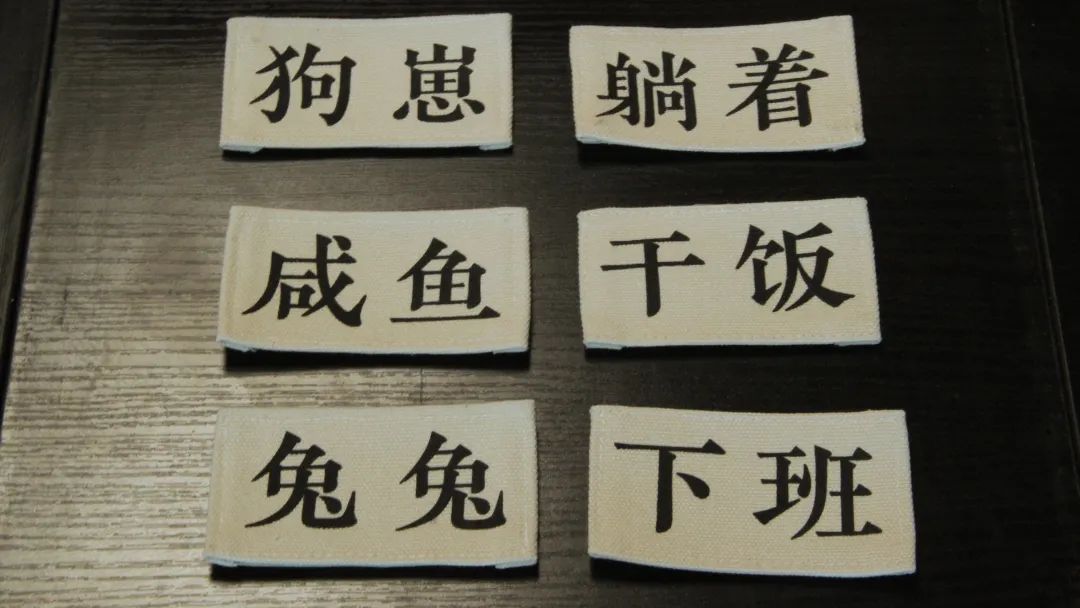 狗崽 躺着
咸鱼 干饭
兔兔 下班